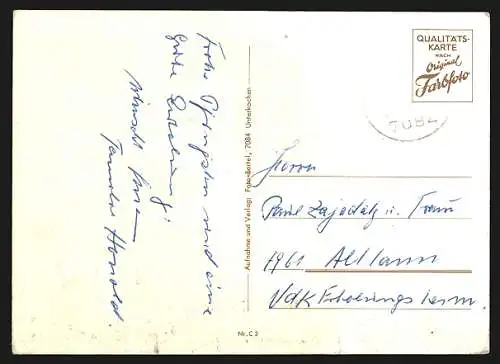 Frohe Pfingsten und eine
gute Erholung!
wünscht Ihnen
Familie Honold.
Aufnahme und Verlag: Foto-Bartel, 7084 Unterkochen
QUALITÄTS-
KARTE
NACH
Original
Farbfoto
7084
Herrn
Paul Zajadatz u. Frau
7961 Altlann
VdK Erholungsheim
Nr. C 3